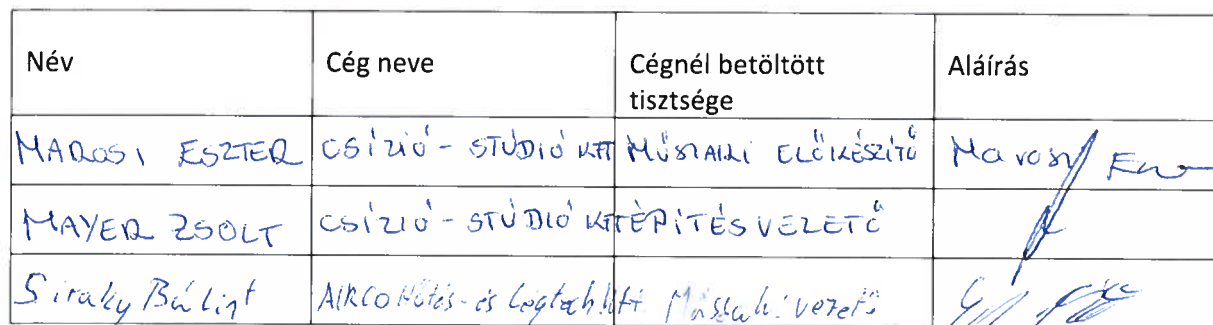 Név Cég neve Cégnél betöltött tisztsége Aláírás
MAROSI ESZTER CSÍZIÓ - STÚDIÓ KFT MŰSZAKI ELŐKÉSZÍTŐ Marosi
MAYER ZSOLT CSÍZIÓ - STÚDIÓ KFT ÉPÍTÉSVEZETŐ
Siraky Bálint AIRCO Hűtés- és Légtech. Kft. Műszaki vezető